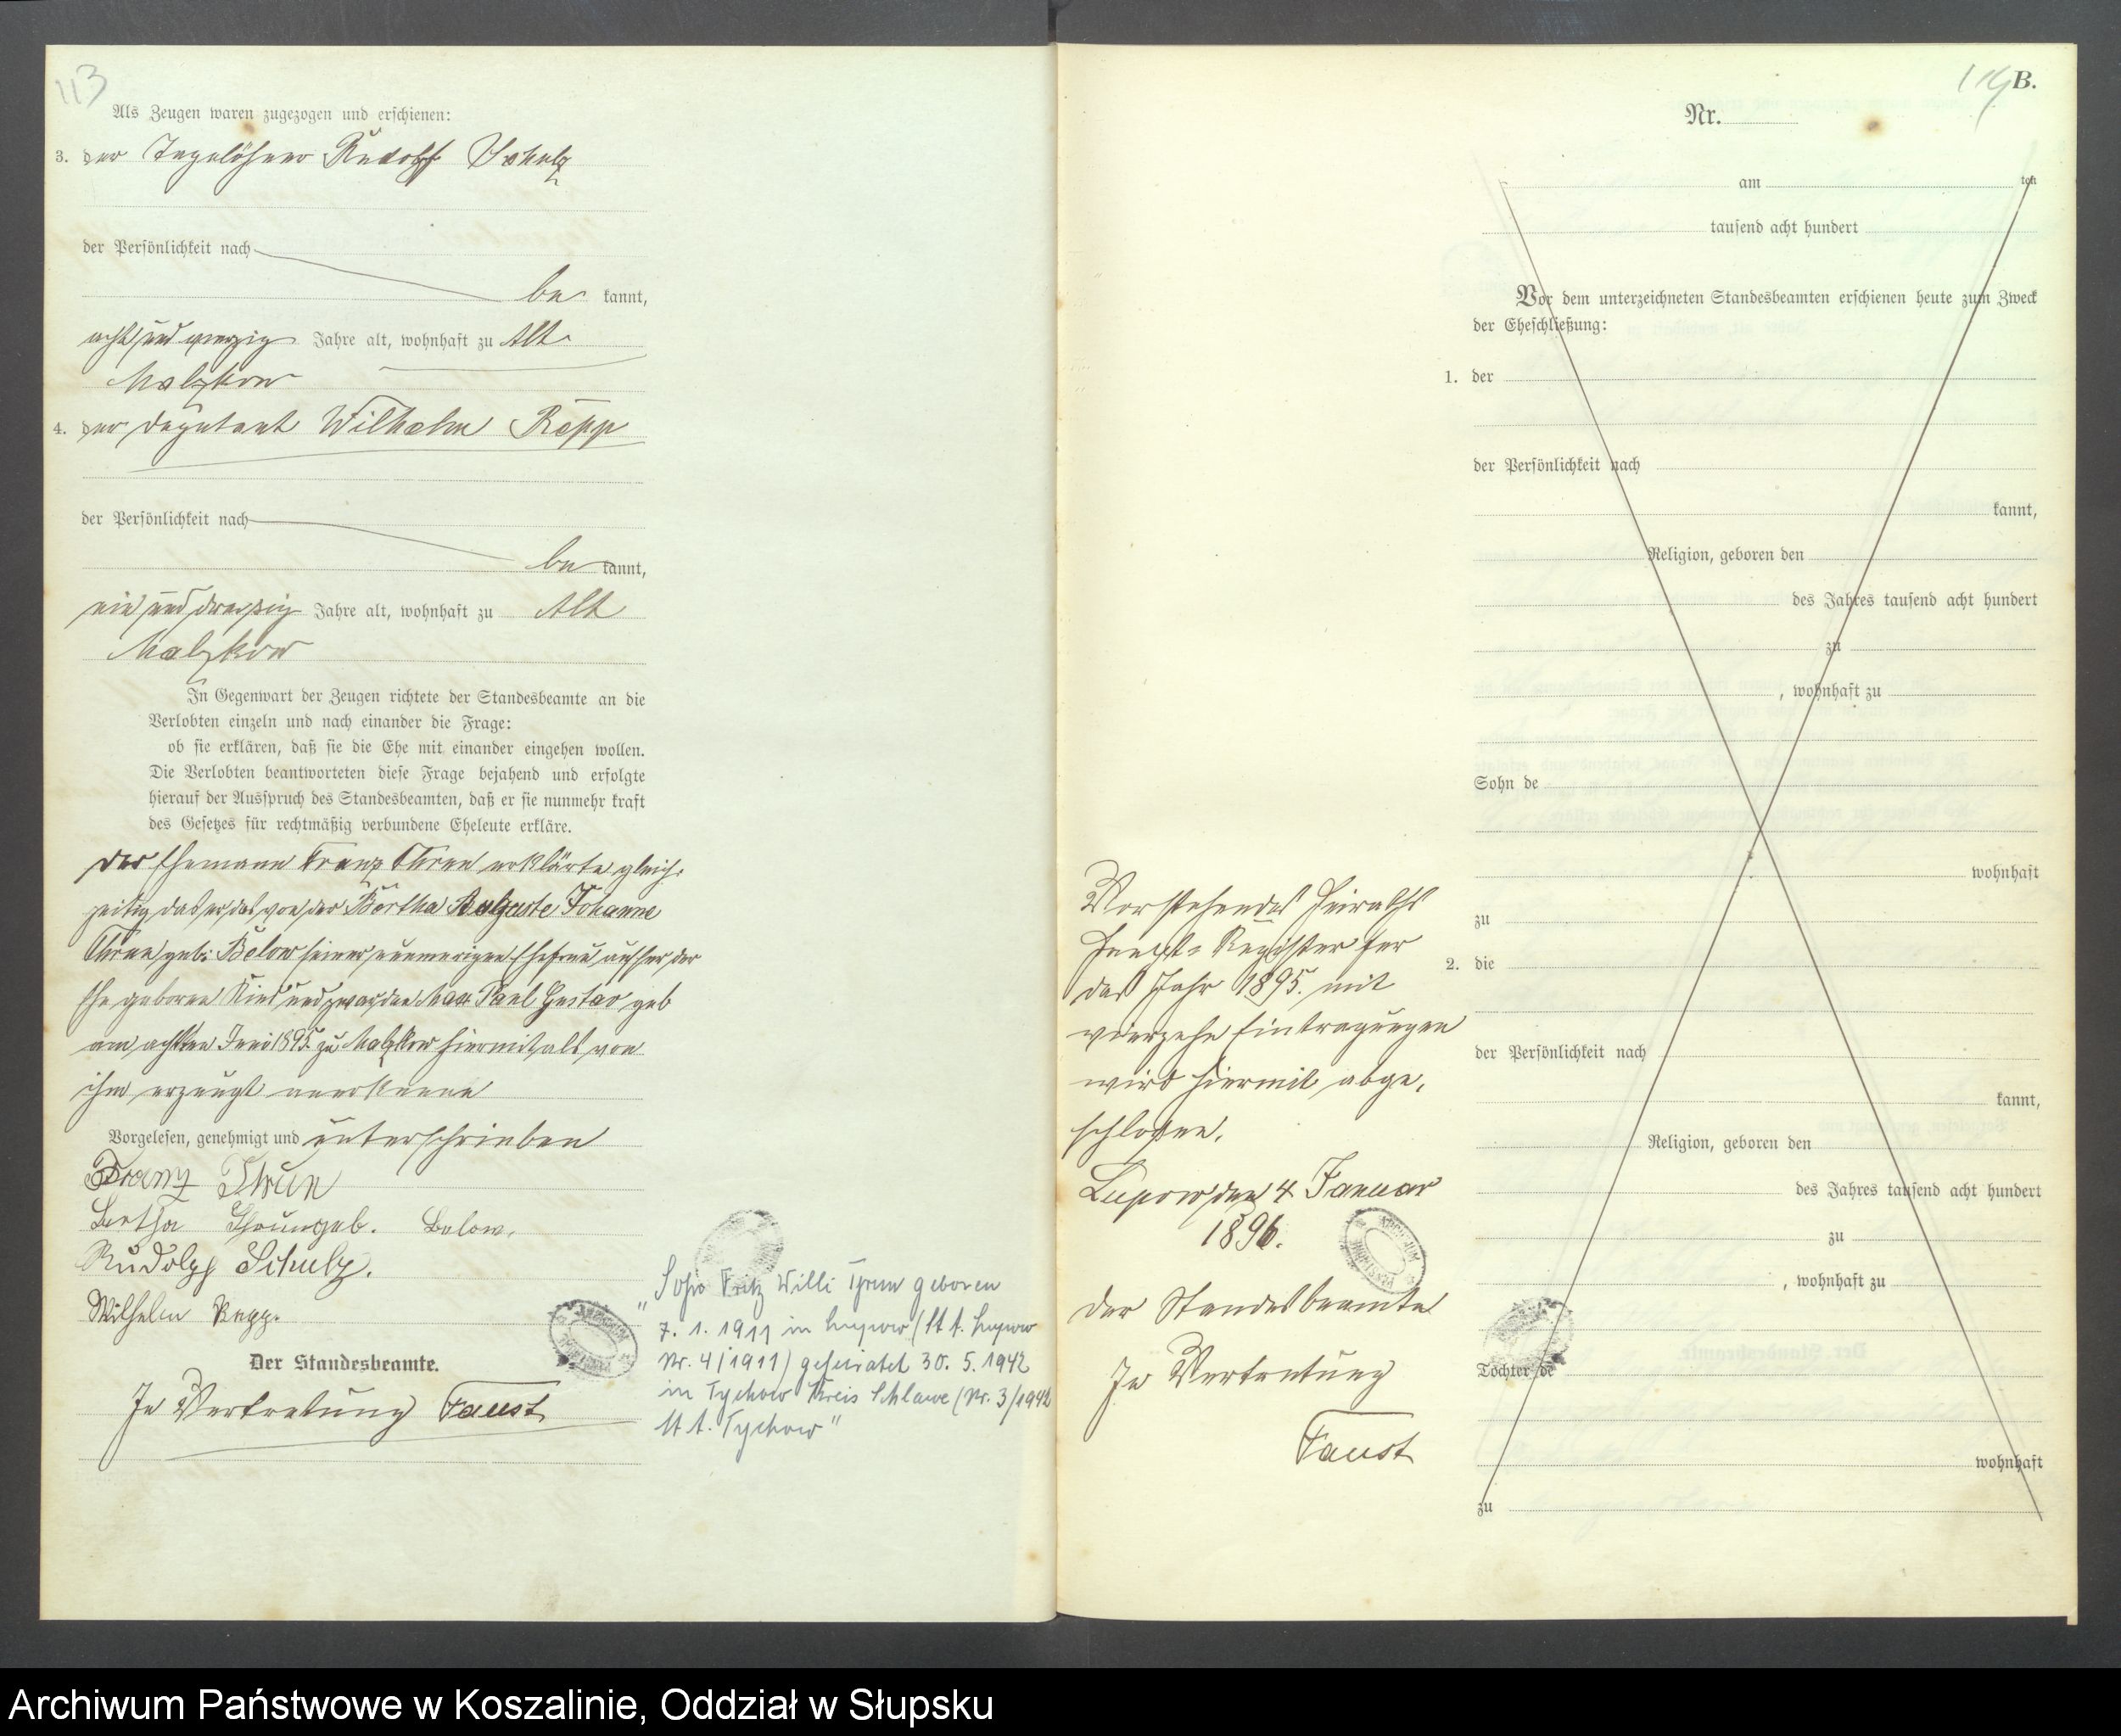 113
Als Zeugen waren zugezogen und erschienen:
3. der Tagelöhner Rudolf Schulz
der Persönlichkeit nach
be kannt,
acht und vierzig Jahre alt, wohnhaft zu Alt
Malzkow
4. der Deputant Wilhelm Repp
der Persönlichkeit nach
be kannt,
ein und dreißig Jahre alt, wohnhaft zu Alt
Malzkow
In Gegenwart der Zeugen richtete der Standesbeamte an die
Verlobten einzeln und nach einander die Frage:
ob sie erklären, daß sie die Ehe mit einander eingehen wollen.
Die Verlobten beantworteten diese Frage bejahend und erfolgte
hierauf der Ausspruch des Standesbeamten, daß er sie nunmehr kraft
des Gesetzes für rechtmäßig verbundene Eheleute erkläre.
Der Ehemann Franz Thrun erklärte gleich-
zeitig das er das von der Bertha Auguste Johanne
Thrun geb. Below seiner nunmerigen Ehefrau ausser der
Ehe geborene Kind und zwar den Max Paul Gustav geb
am achtten Juni 1895 zu Malzkow hiermit als von
ihm erzeugt anerkenne
Vorgelesen, genehmigt und unterschrieben
Franz Thrun
Bertha Thrun geb. Below.
Rudolf Schulz.
Wilhelm Repp.
Der Standesbeamte.
In Vertretung Faust
"Sohn Fritz Willi Thrun geboren
7. 1. 1911 in Lupow (St A. Lupow
Nr. 4/1911) geheiratet 30. 5. 1942
in Tychow Kreis Schlawe (Nr. 3/1942
St A. Tychow"
B.
Nr.
am ten
tausend acht hundert
Vor dem unterzeichneten Standesbeamten erschienen heute zum Zweck
der Eheschließung:
1. der
der Persönlichkeit nach
kannt,
Religion, geboren den
des Jahres tausend acht hundert
zu
, wohnhaft zu
Sohn de
wohnhaft
zu
2. die
der Persönlichkeit nach
kannt,
Religion, geboren den
des Jahres tausend acht hundert
zu
, wohnhaft zu
Tochter de
wohnhaft
zu
Vorstehendes Heiraths
Haupt-Register fer
das Jahr 1895. mit
vierzehn Eintragungen
wird hiermit abge-
schlossen.
Lupow den 4 Januar
1896.
Der Standesbeamte
In Vertretung
Faust
Archiwum Państwowe w Koszalinie, Oddział w Słupsku